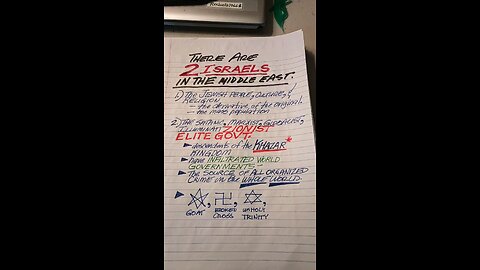 THERE ARE
2 ISRAELS
IN THE MIDDLE EAST.
1.) THE JEWISH PEOPLE, CULTURE, &
RELIGION
- the derivative of the original
- the main population
2.) THE SATANIC, MARXIST, GLOBALIST,
ILLUMINATI ZIONIST
ELITE GOV'T.
descendants of the KHAZAR *
KINGDOM
have INFILTRATED WORLD
GOVERNMENTS
THE SOURCE OF ALL ORGANIZED
Crime in the WHOLE WORLD.
GOAT
BROKEN
CROSS
UNHOLY
TRINITY